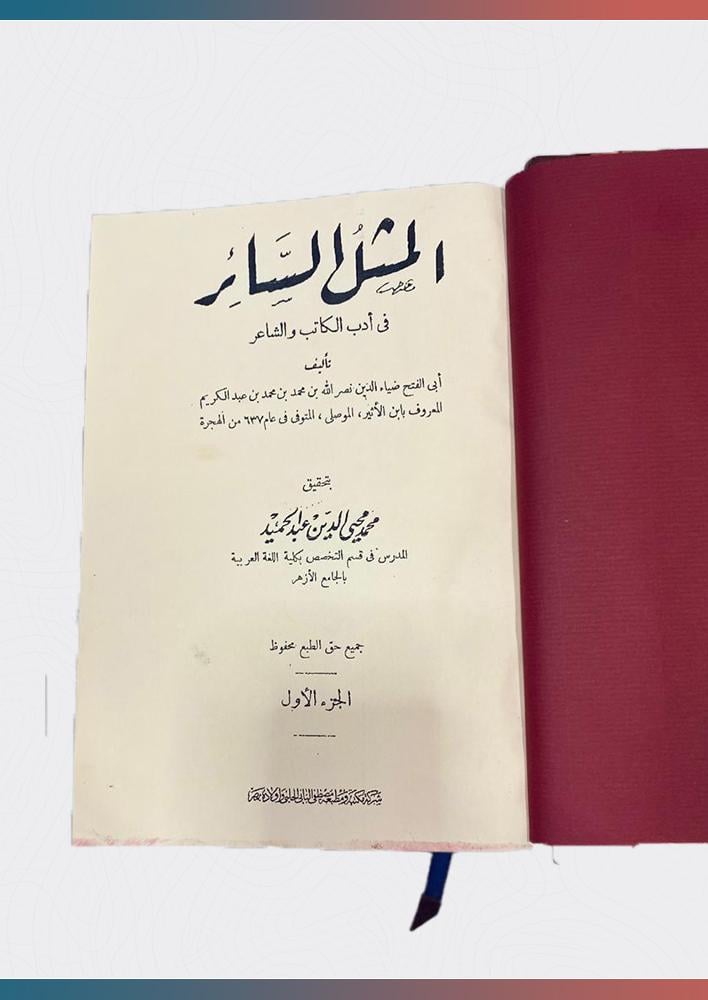 المثل السَّائر
في أدب الكاتب والشاعر
تأليف
أبى الفتح ضياء الدين نصر الله بن محمد بن محمد بن عبد الكريم
المعروف بابن الأثير، الموصلى، المتوفى فى عام ٦٣٧ من الهجرة
بتحقيق
محمد محيي الدين عبد الحميد
المدرس فى قسم التخصص بكلية اللغة العربية
بالجامع الأزهر
جميع حق الطبع محفوظ
الجزء الأول
شركة مكتبة ومطبعة مصطفى البابى الحلبى وأولاده بمصر